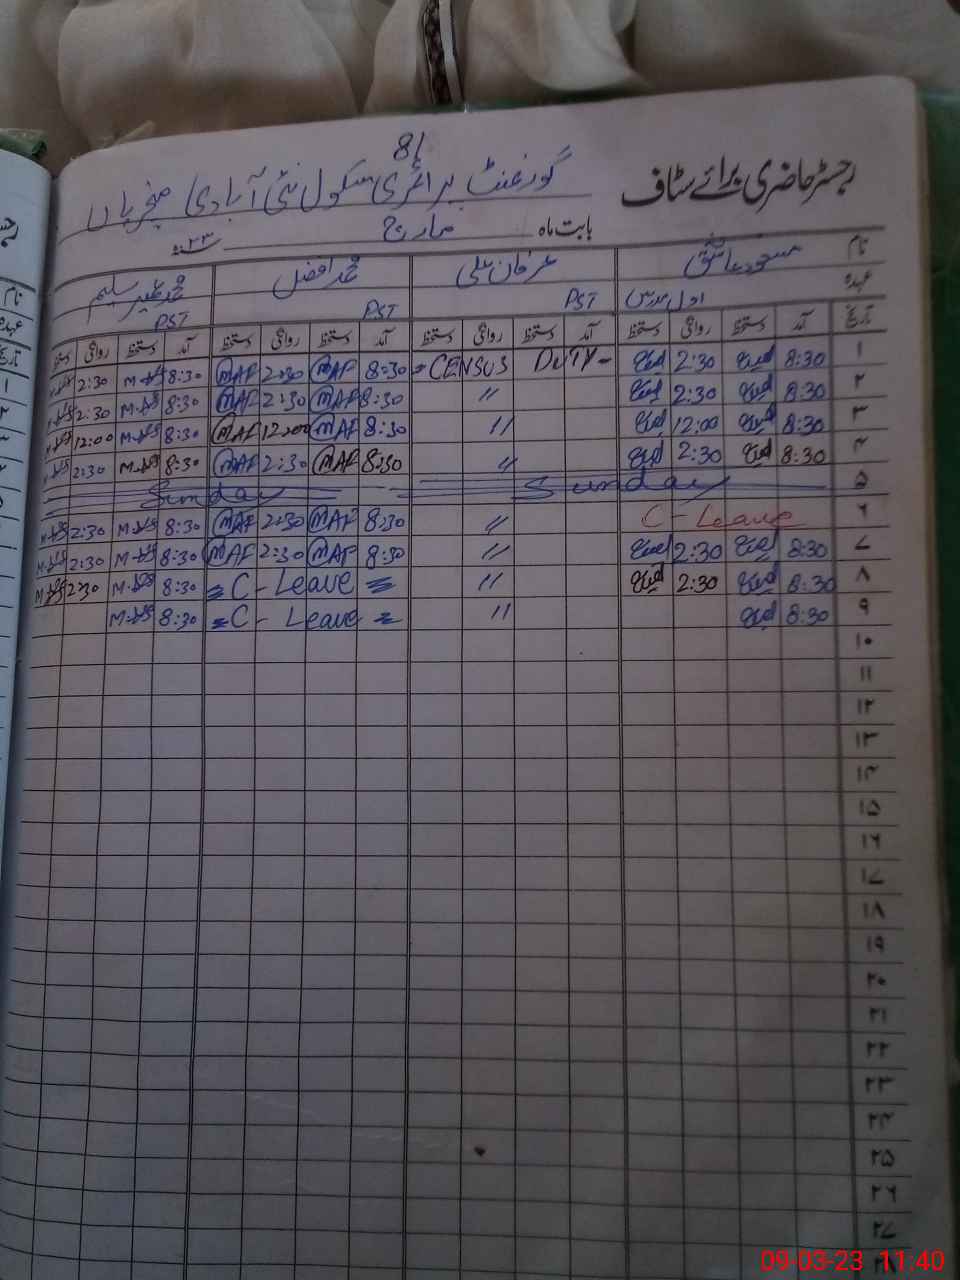 81
رجسٹر حاضری برائے سٹاف گورنمنٹ پرائمری سکول نئی آبادی
بابت ماہ مارچ ۲۳ء
نام مسعود عاشق عرفان علی محمد افضل محمد عمیر سلیم
عہدہ اول مدرس PST PST PST
تاریخ آمد دستخط روانگی دستخط آمد دستخط روانگی دستخط آمد دستخط روانگی دستخط آمد دستخط روانگی دستخط
۱ 8:30 2:30 = CENSUS DUTY = 8:30 MAF 2:30 MAF 8:30 2:30
۲ 8:30 2:30 〃 8:30 MAF 2:30 MAF 8:30 2:30
۳ 8:30 12:00 〃 8:30 MAF 12:00 MAF 8:30 12:00
۴ 8:30 2:30 〃 8:30 MAF 2:30 MAF 8:30 2:30
۵ Sunday Sunday
۶ C - Leave 〃 8:30 MAF 2:30 MAF 8:30 2:30
۷ 8:30 2:30 〃 8:30 MAF 2:30 MAF 8:30 2:30
۸ 8:30 2:30 〃 = C - Leave = 8:30 2:30
۹ 8:30 〃 = C - Leave = 8:30
۱۰
۱۱
۱۲
۱۳
۱۴
۱۵
۱۶
۱۷
۱۸
۱۹
۲۰
۲۱
۲۲
۲۳
۲۴
۲۵
۲۶
۲۷
۲۸
09-03-23 11:40